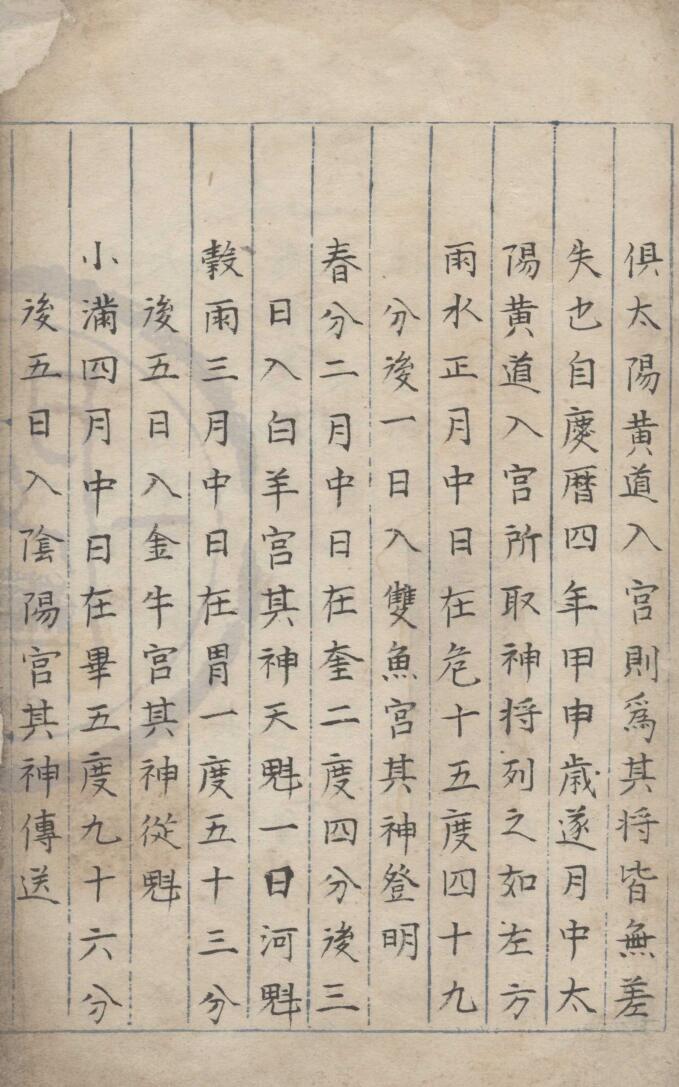 俱太陽黄道入宫則爲其将皆無差
失也自慶曆四年甲申歳遂月中太
陽黄道入宫所取神将列之如左方
雨水正月中日在危十五度四十九
分後一日入雙魚宫其神登明
春分二月中日在奎二度四分後三
日入白羊宫其神天魁一曰河魁
穀雨三月中日在胃一度五十三分
後五日入金牛宫其神從魁
小滿四月中日在畢五度九十六分
後五日入陰陽宫其神傳送